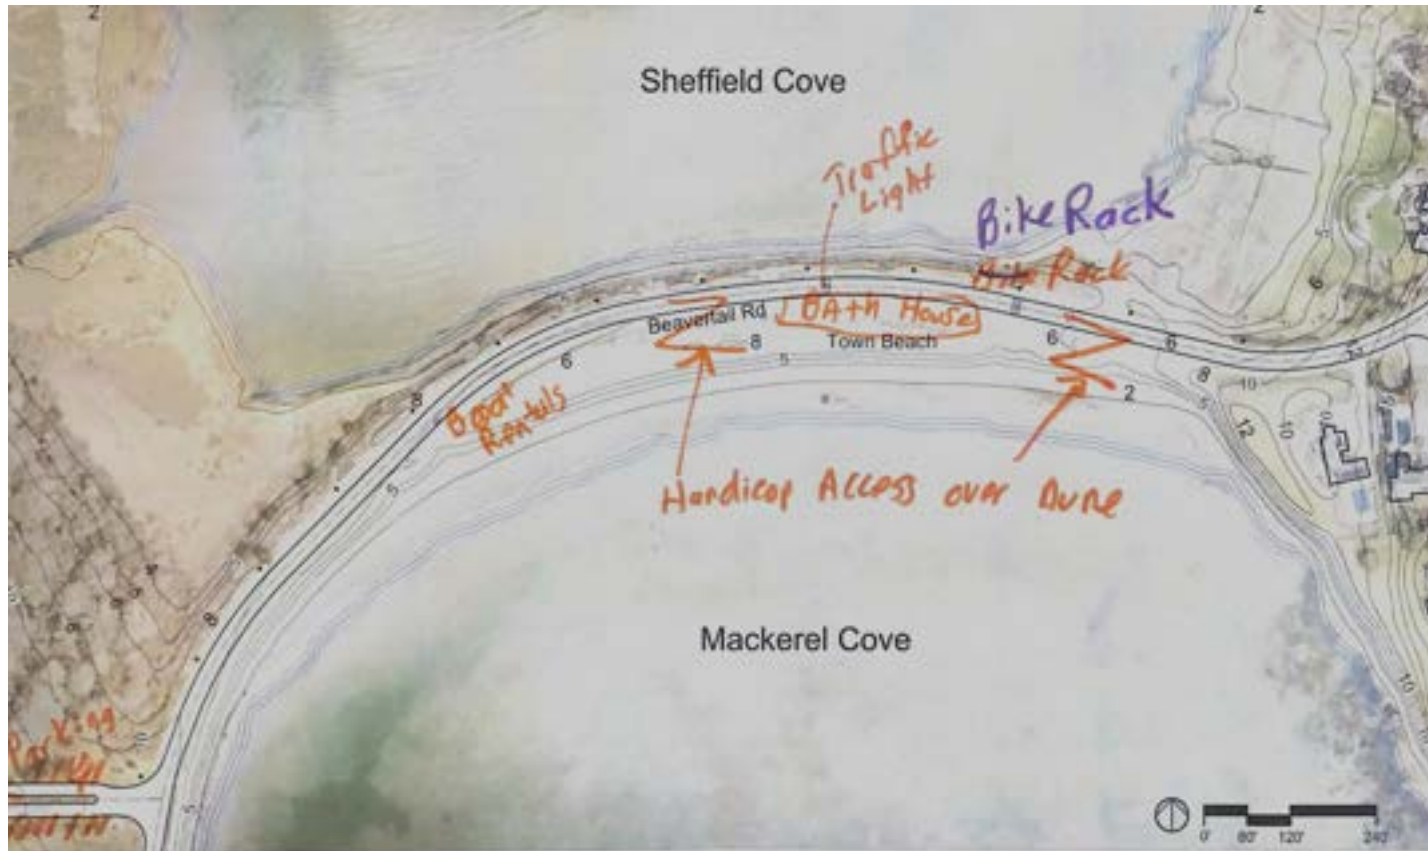 2
2
Sheffield Cove
Traffic
Light
Bike Rack
Bike Rack
Beavertail Rd
BAth House
Town Beach
8
8
6
6
6
8
5
2
10
12
10
6
Boat
Rentals
8
5
Handicap Access over Dune
8
Mackerel Cove
10
Parking
5
0' 60' 120' 240'